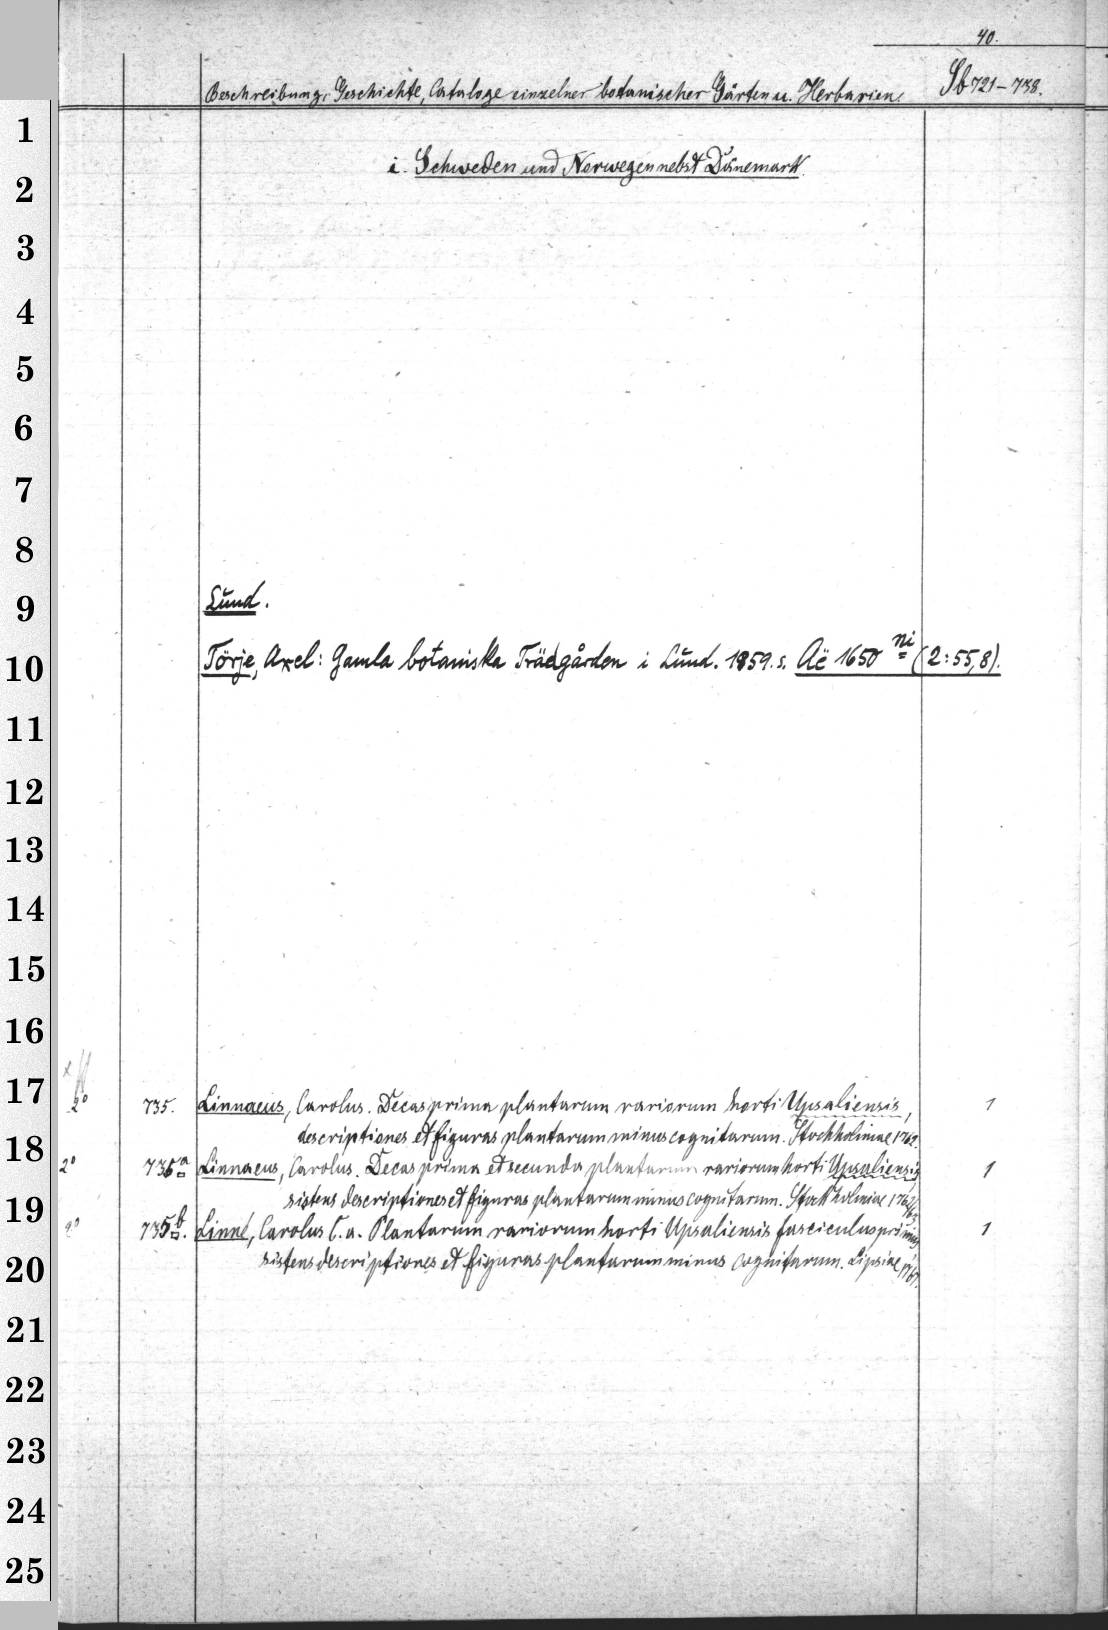 40.
Beschreibung, Geschichte, Cataloge einzelner botanischer Gärten u. Herbarien. Sb 721-738.
i. Schweden und Norwegen nebst Dänemark.
1
2
3
4
5
6
7
8
9
10
11
12
13
14
15
16
17
18
19
20
21
22
23
24
25
Lund.
Törje, Axel: Gamla botaniska Trädgården i Lund. 1959. s. Aë 1650 ni (2:55,8).
2° 735. Linnaeus, Carolus. Decas prima plantarum rariorum horti Upsaliensis, 1
descriptiones et figuras plantarum minus cognitarum. Stockholmiae 1762.
2° 735a Linnaeus, Carolus. Decas prima et secunda plantarum rariorum horti Upsaliensis 1
sistens descriptiones et figuras plantarum minus cognitarum. Stockholmiae 1762/63
2° 735b. Linné, Carolus C. a. Plantarum rariorum horti Upsaliensis fasciculus primus 1
sistens descriptiones et figuras plantarum minus cognitarum. Lipsiae 1767.